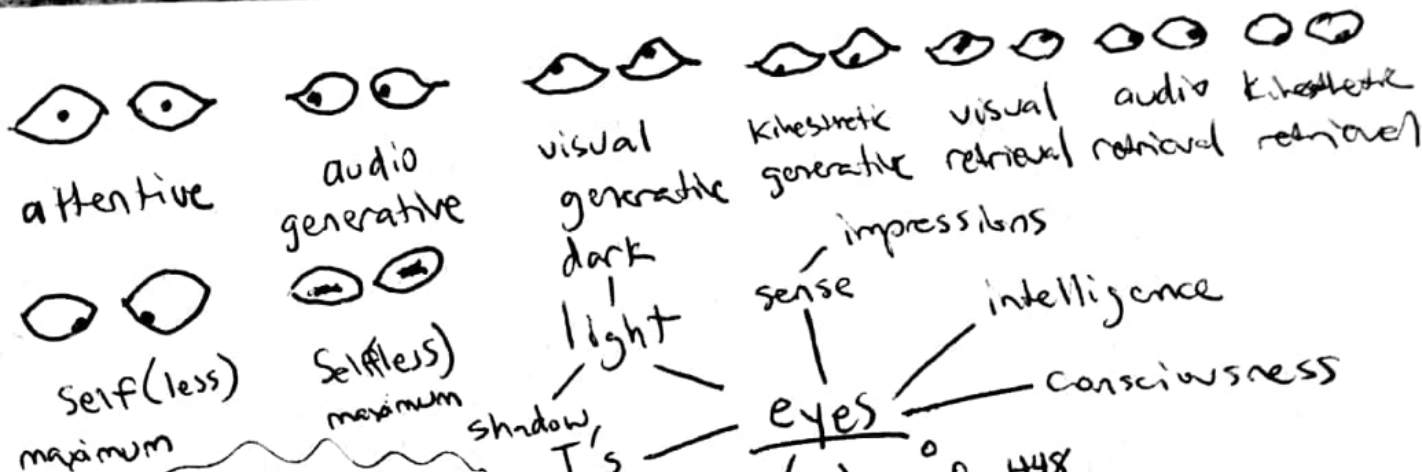 attentive
audio
generative
visual
generative
kinesthetic
generative
visual
retrieval
audio
retrieval
kinesthetic
retrieval
self(less)
maximum
self(less)
maximum
dark
light
shadow,
I's
sense
impressions
intelligence
consciousness
eyes
448